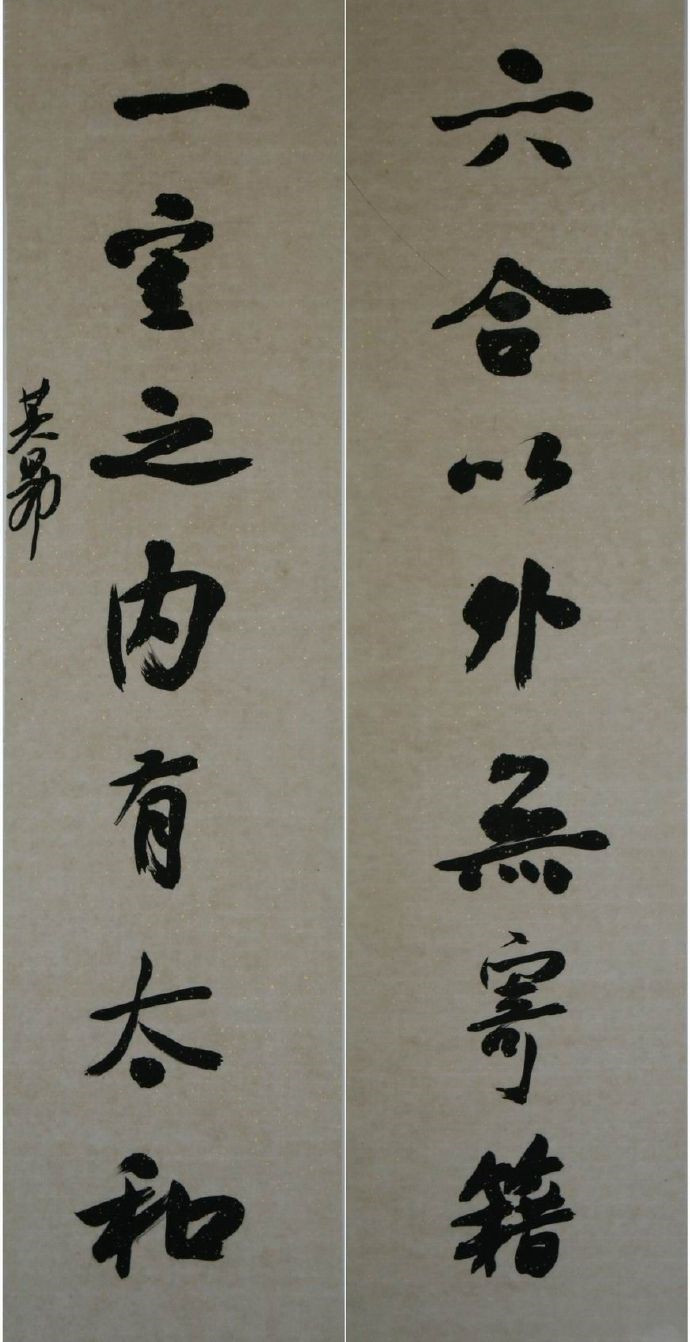 六合以外無寄籍
一室之内有太和